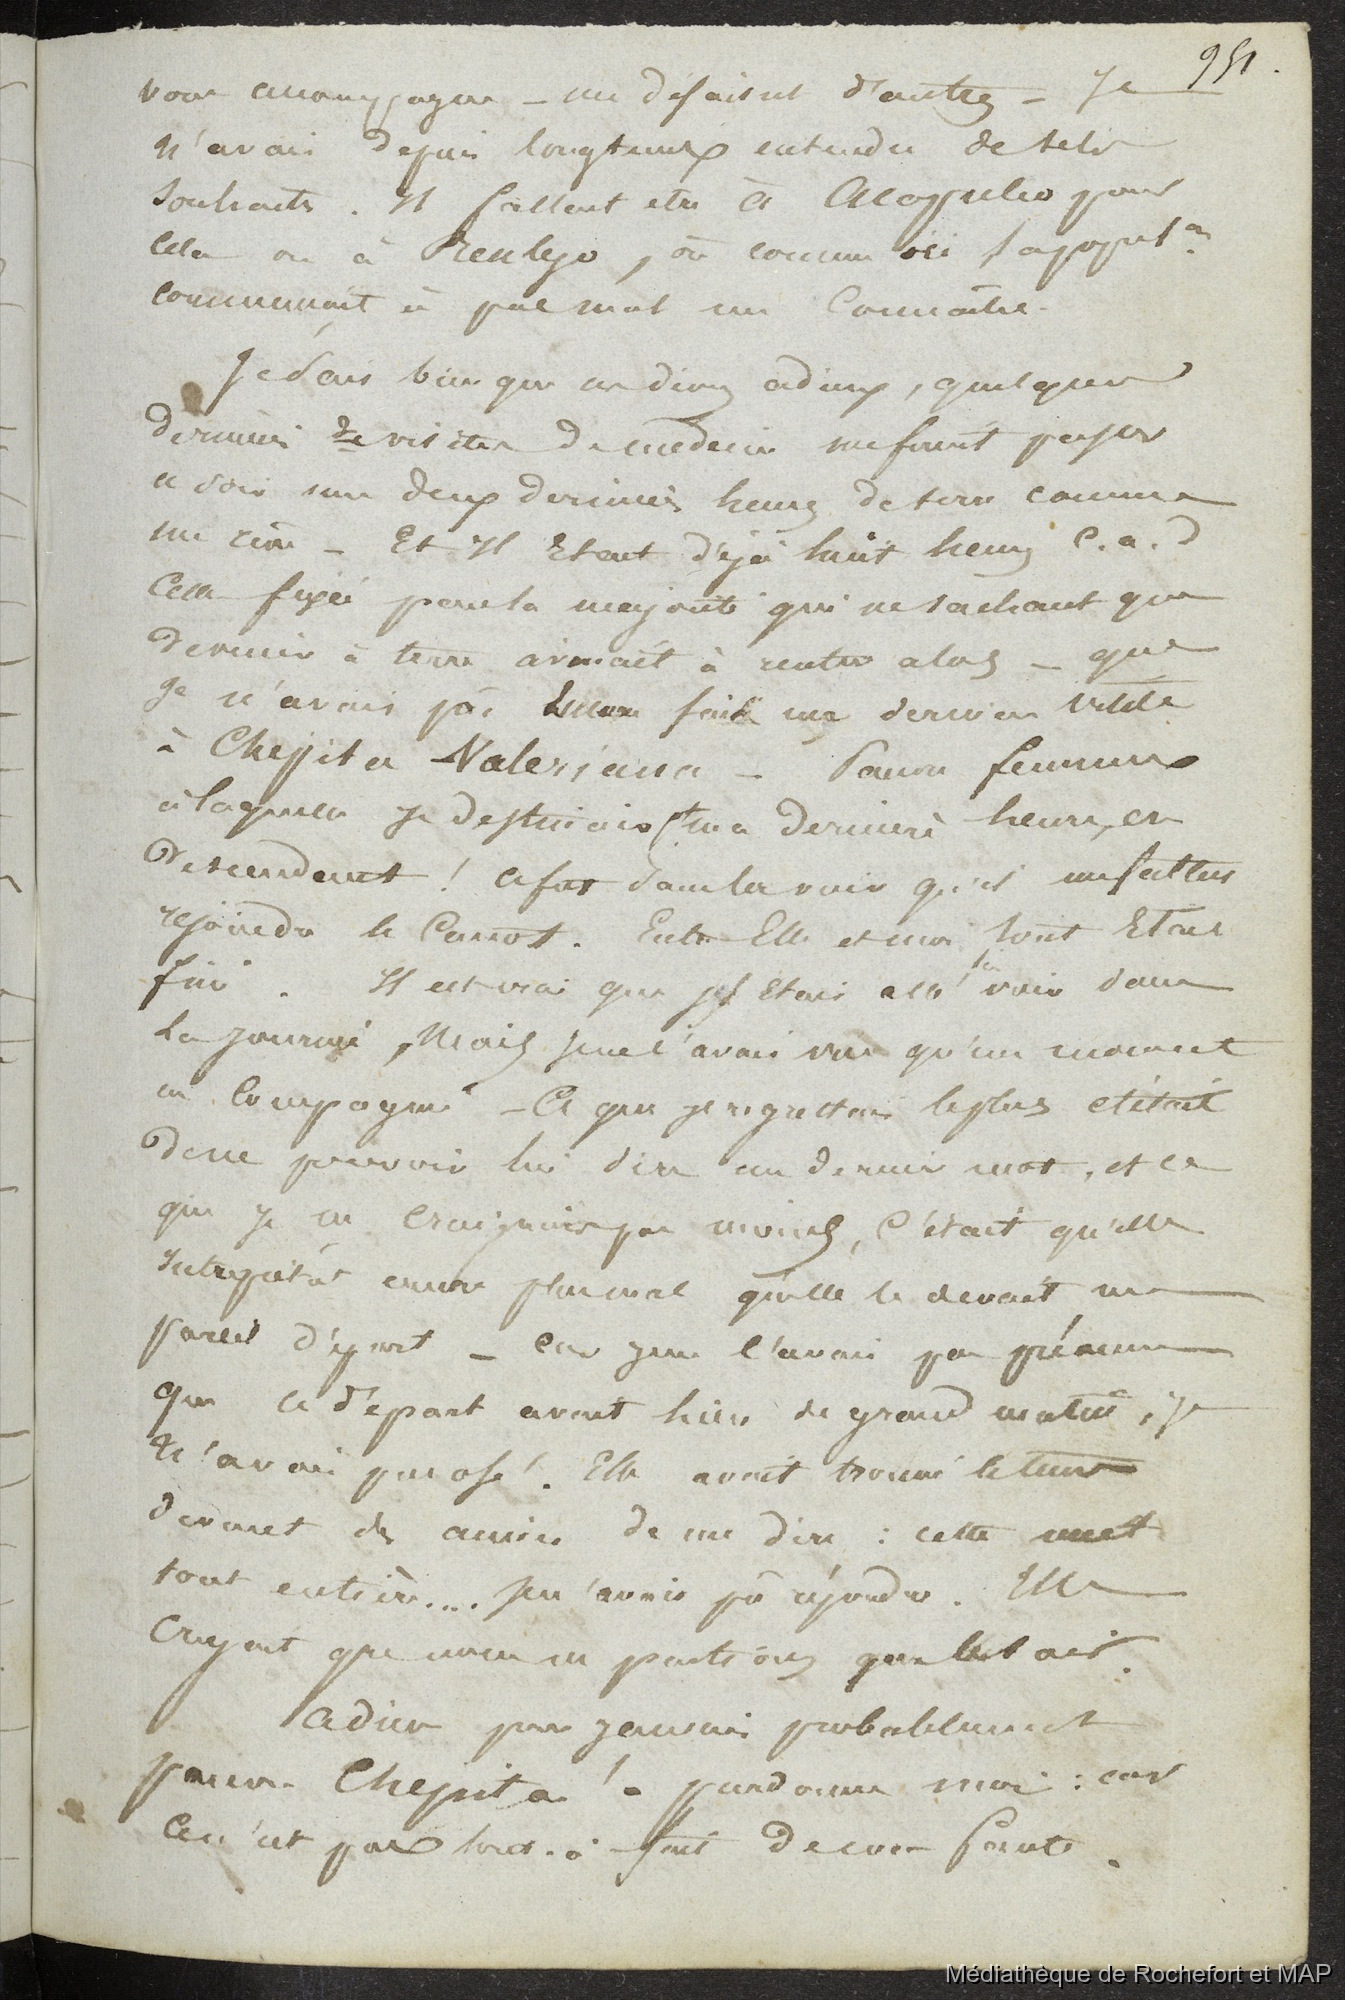 951.
vous accompagne — me disaient d'autres — Je
n'avais depuis longtemps entendu de tels
souhaits. Il fallait etre à Acapulco pour
cela ou à Realejo, où comme ici la populon
commencait à pas mal me Connaître.
Je sais bien que ces divers adieux, quelques
dernières visites de medecin me firent passer
à voir mes deux dernières heures de terre comme
un rien — Et Il Etait déjà huit heures C.a.d
Celle fixée par la majorité qui ne sachant que
devenir à terre aimait à rentrer alors — que
je n'avais pas fait ma dernière visite
à Chepita Valeriana — Pauvre femme
à laquelle je destinais ma dernière heure, en
descendant ! ce fut sans la voir qu'il me fallut
rejoindre le Canot. Entre Elle et moi tout Etait
fini. Il est vrai que j'Etais allé la voir dans
La journée, Mais je ne l'avais vue qu'un moment
en Compagnie — Ce que je regrettais le plus c'était
de ne pouvoir lui dire un dernier mot, et ce
que je ne craignais pas moins, C'était qu'elle
interpretât encore plus mal qu'elle le devait un
pareil départ — Car je ne l'avais pas prévenue
que ce départ avait lieu de grand matin, je
n'avais pas osé. Elle avait trouvé le tems
devant des amies de me dire : cette nuit
tout entière.... Je n'avais pû répondre. Elle
Croyait que nous ne partions que le soir.
Adieu pour jamais probablement
pauvre Chepita ! — pardonne moi : car
Ce n'est pas tout-à-fait de ma faute.
Médiathèque de Rochefort et MAP